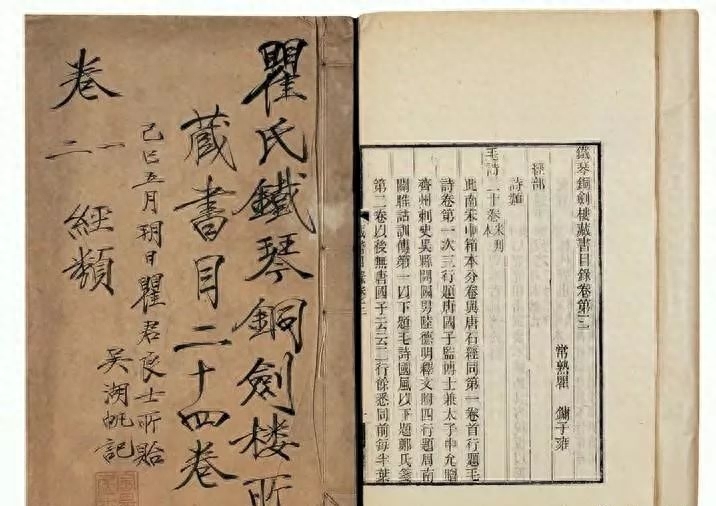 瞿氏鐵琴銅劍樓所
藏書目二十四卷
己巳五月朔日瞿君良士所貽
吳湖帆記
卷
一
二
經類
鐵琴銅劍樓藏書目錄卷第三
常熟瞿 鏞子雍
經部
詩類
毛詩二十卷 宋刊本
此南宋巾箱本分卷與唐石經同第一卷首行題毛
詩卷第一次三行題唐國子監博士兼太子中允贈
齊州刺史吳縣開國男陸德明釋文附四行題周南
關雎詁訓傳第一以下題毛詩國風以下題鄭氏箋
第二卷以後無唐國子云云二行餘悉同前每半葉